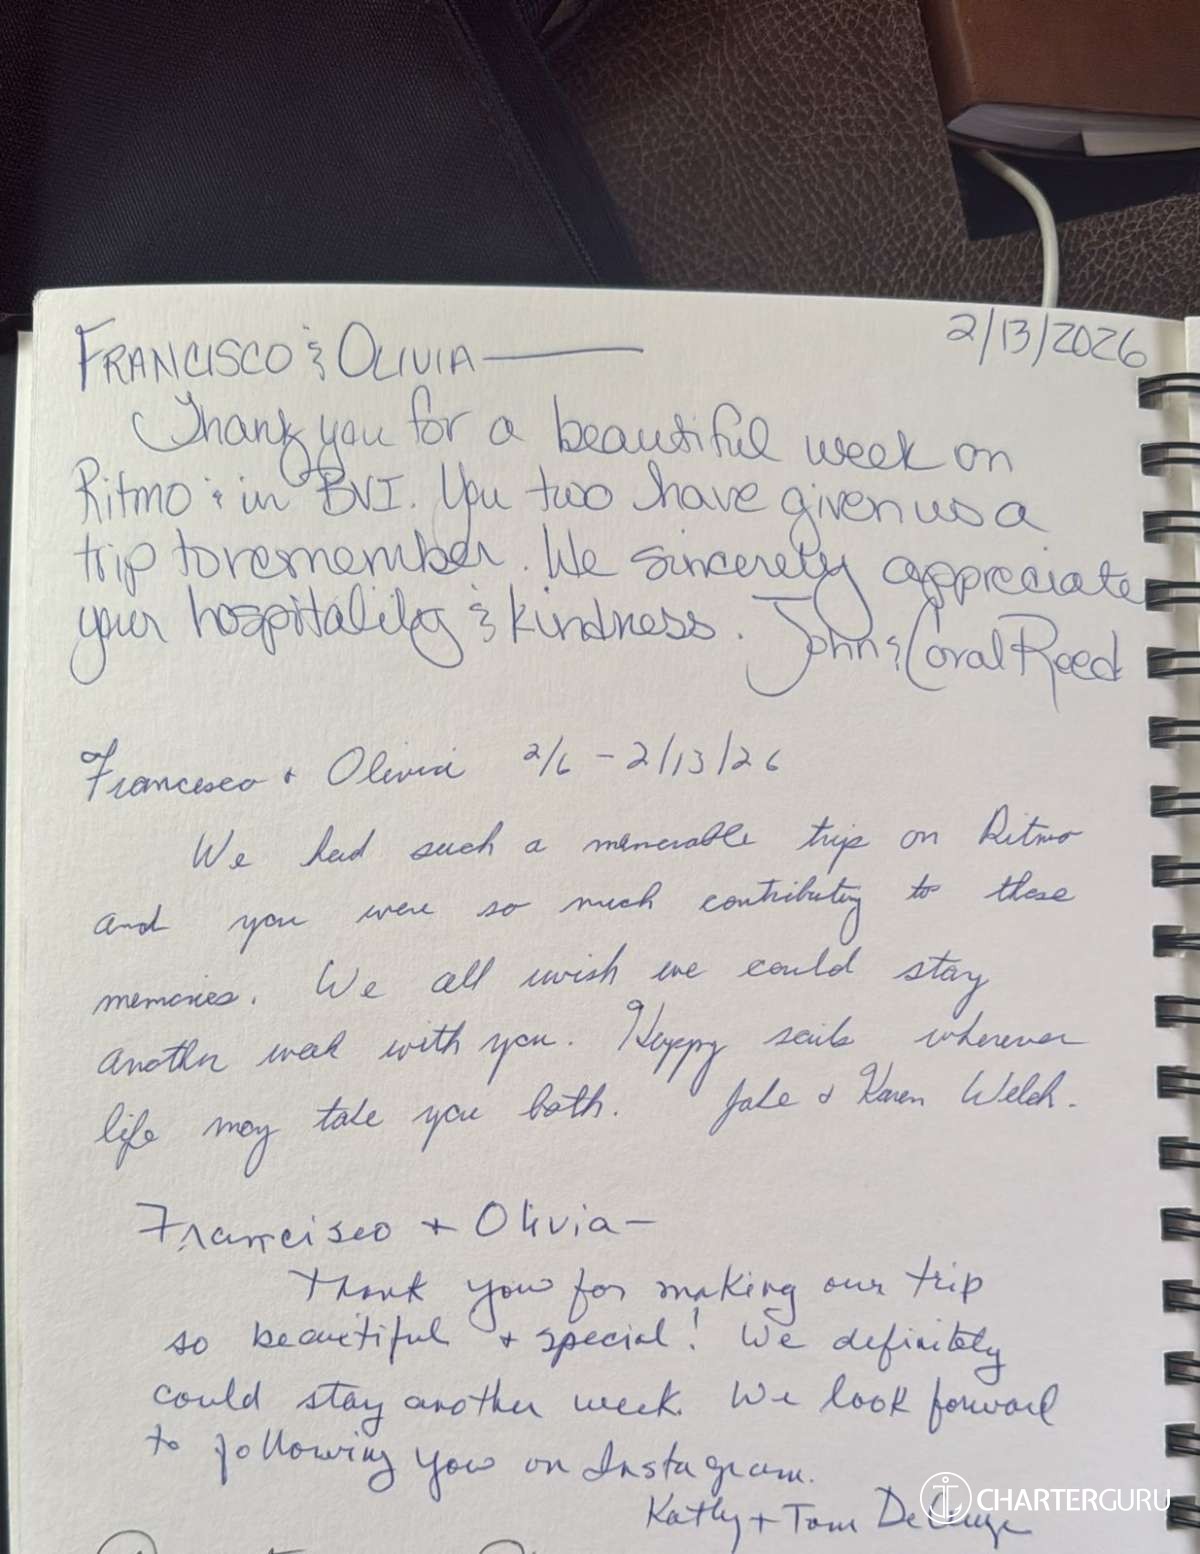 FRANCISCO & OLIVIA —
2/13/2026
Thank you for a beautiful week on
Ritmo & in BVI. You two have given us a
trip to remember. We sincerely appreciate
your hospitality & kindness. John & Coral Reed
Francesco + Olivia 2/6 - 2/13/26
We had such a memorable trip on Ritmo
and you were so much contributing to these
memories. We all wish we could stay
another week with you. Happy sails wherever
life may take you both. Jake & Karen Welch.
Francisco + Olivia —
Thank you for making our trip
so beautiful + special! We definitely
could stay another week. We look forward
to following you on Instagram.
Kathy + Tom
CHARTERGURU